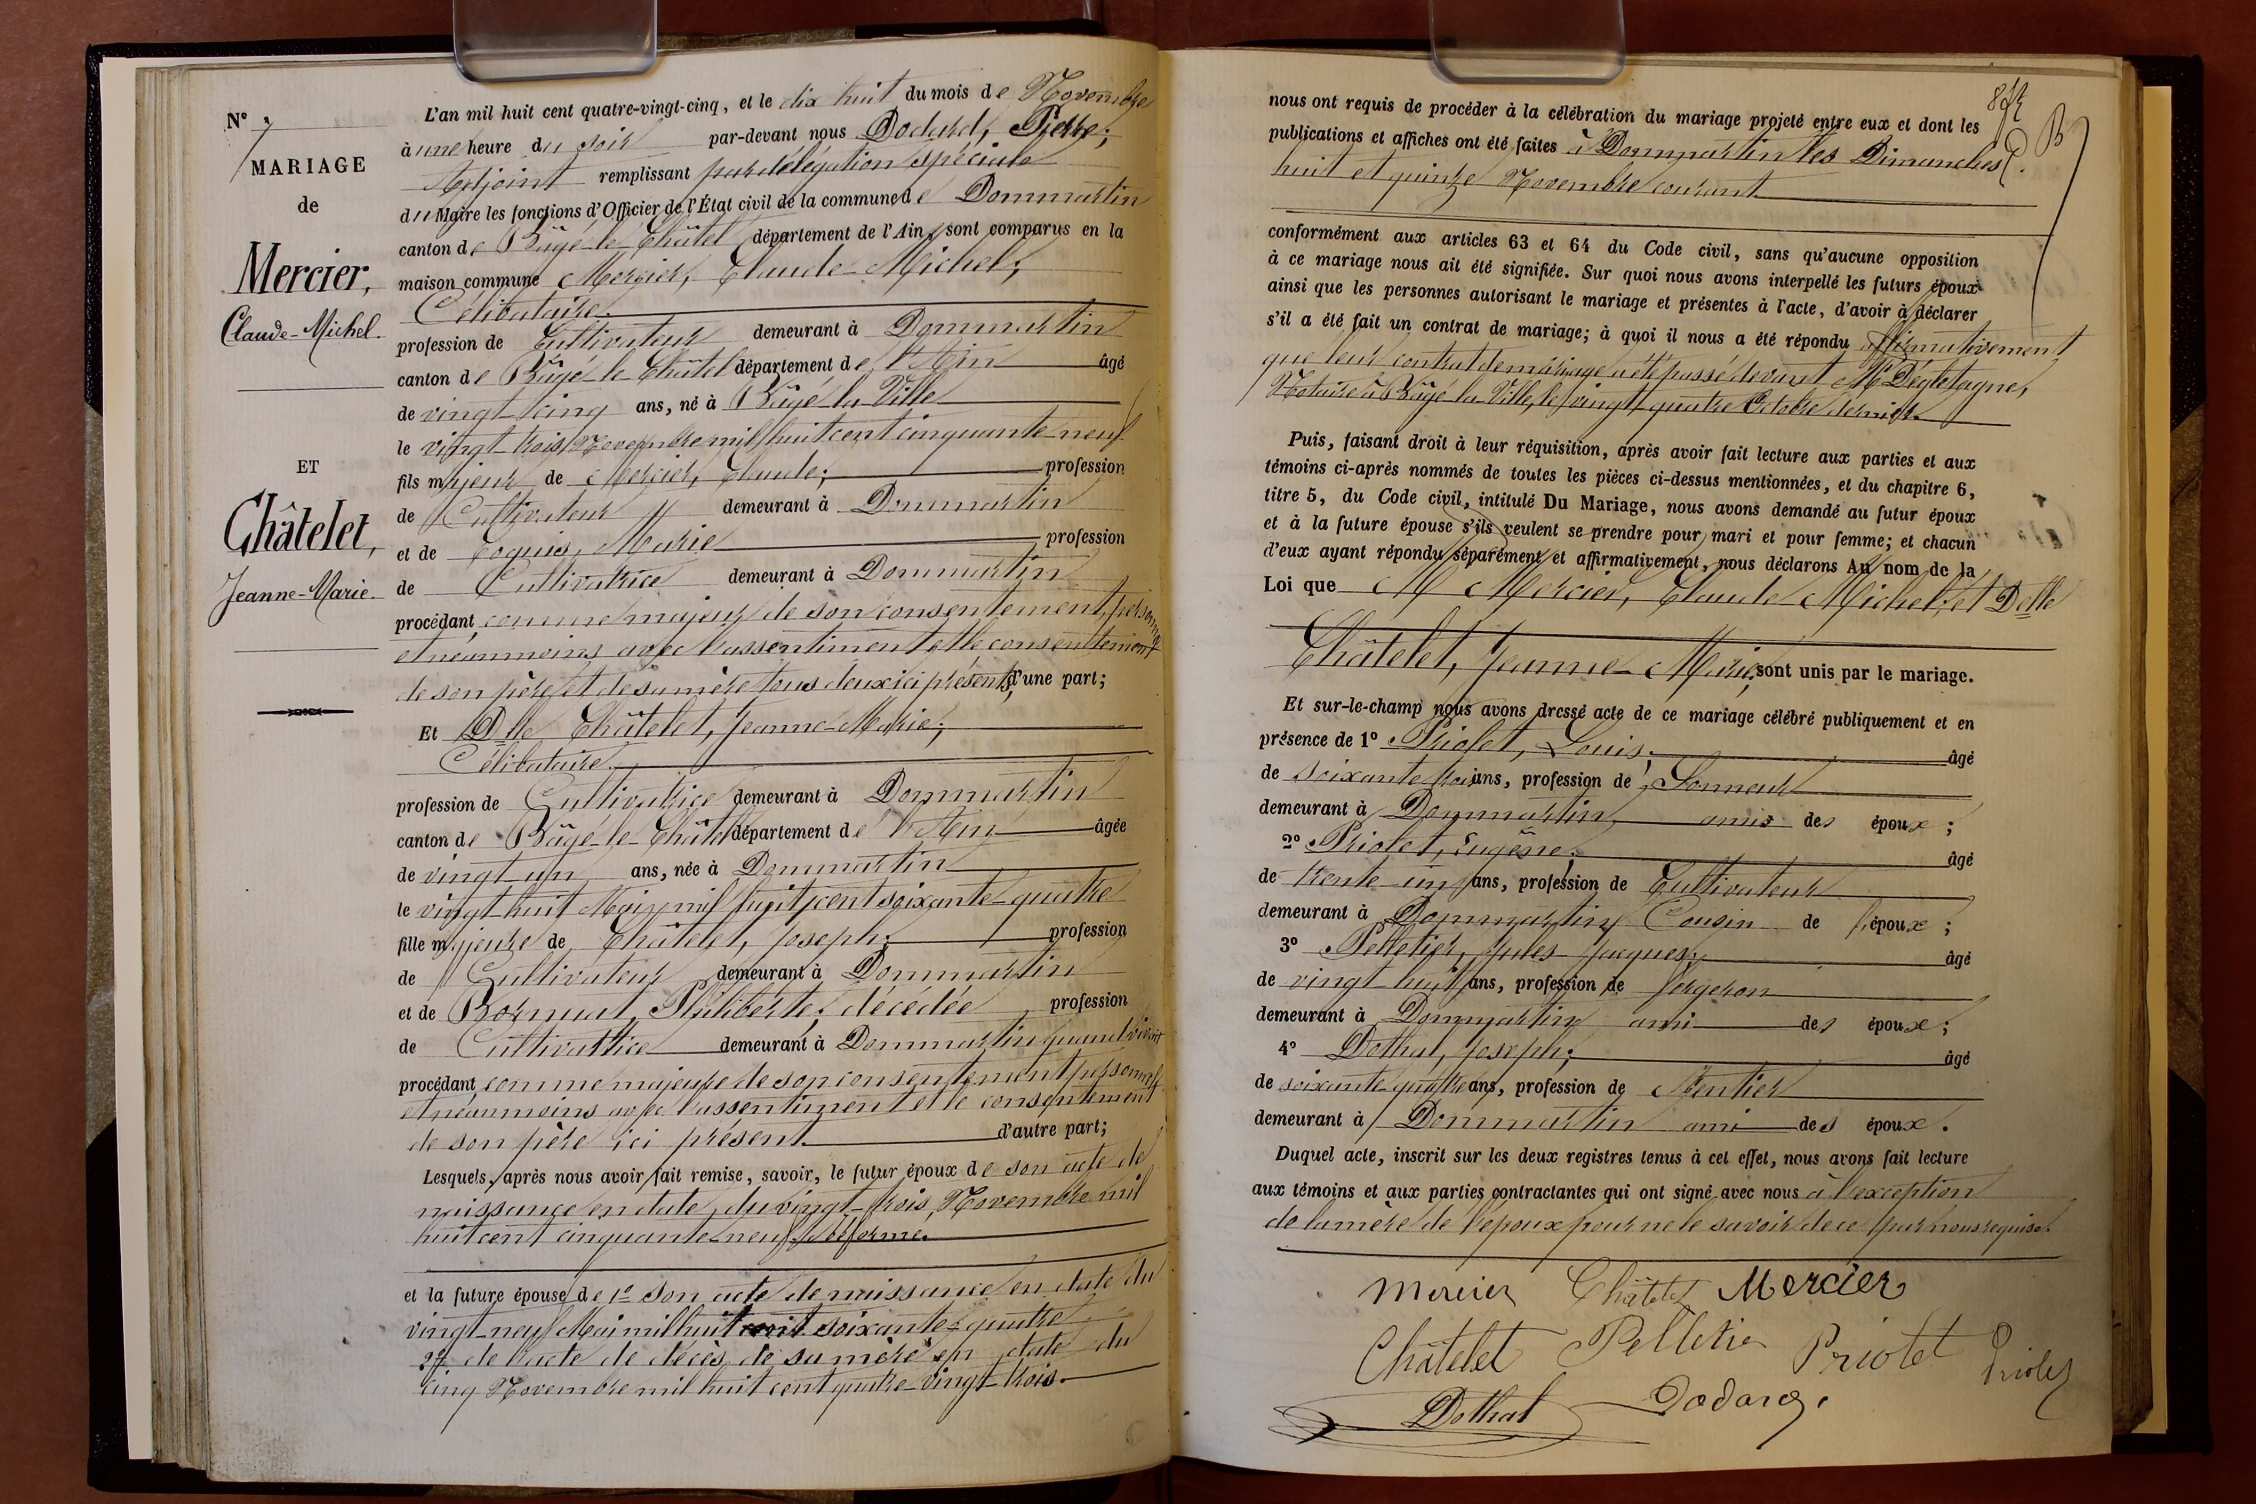 N° 7
MARIAGE
de
Mercier,
Claude-Michel.
ET
Châtelet,
Jeanne-Marie.
L'an mil huit cent quatre-vingt-cinq, et le dix huit du mois de Novembre
à une heure du soir par-devant nous Dodard, Pierre,
Adjoint remplissant par délégation spéciale
du Maire les fonctions d'Officier de l'État civil de la commune de Dommartin
canton de Bâgé-le-Châtel département de l'Ain, sont comparus en la
maison commune Mercier, Claude-Michel,
Célibataire.
profession de Cultivateur demeurant à Dommartin
canton de Bâgé-le-Châtel département de l'Ain âgé
de vingt cinq ans, né à Bâgé-la-Ville
le vingt trois Novembre mil huit cent cinquante-neuf
fils majeur de Mercier, Claude, profession
de Cultivateur demeurant à Dommartin
et de Marie profession
de Cultivatrice demeurant à Dommartin
procédant comme majeur de son consentement personnel
et néanmoins avec l'assentiment et le consentement
de son père et de sa mère tous deux ici présents, d'une part;
Et Dlle Châtelet, Jeanne-Marie,
Célibataire.
profession de Cultivatrice demeurant à Dommartin
canton de Bâgé-le-Châtel département de l'Ain âgée
de vingt un ans, née à Dommartin
le vingt-huit Mai mil huit cent soixante-quatre
fille majeure de Châtelet, Joseph, profession
de Cultivateur demeurant à Dommartin
et de Philiberte, décédée profession
de Cultivatrice demeurant à Dommartin quand vivait
procédant comme majeure de son consentement personnel
et néanmoins avec l'assentiment et le consentement
de son père ici présent. d'autre part;
Lesquels, après nous avoir fait remise, savoir, le futur époux de son acte de
naissance en date du vingt-trois Novembre mil
huit cent cinquante-neuf. Réformé.
et la future épouse de 1° son acte de naissance en date du
vingt-neuf Mai mil huit cent soixante-quatre
2° de l'acte de décès de sa mère en date du
cinq Novembre mil huit cent quatre-vingt-trois.
nous ont requis de procéder à la célébration du mariage projeté entre eux et dont les
publications et affiches ont été faites à Dommartin les Dimanches
huit et quinze Novembre courant
conformément aux articles 63 et 64 du Code civil, sans qu'aucune opposition
à ce mariage nous ait été signifiée. Sur quoi nous avons interpellé les futurs époux
ainsi que les personnes autorisant le mariage et présentes à l'acte, d'avoir à déclarer
s'il a été fait un contrat de mariage; à quoi il nous a été répondu affirmativement
que leur contrat de mariage a été passé devant Me
Notaire à Bâgé-la-Ville, le vingt-quatre Octobre dernier.
Puis, faisant droit à leur réquisition, après avoir fait lecture aux parties et aux
témoins ci-après nommés de toutes les pièces ci-dessus mentionnées, et du chapitre 6,
titre 5, du Code civil, intitulé Du Mariage, nous avons demandé au futur époux
et à la future épouse s'ils veulent se prendre pour mari et pour femme; et chacun
d'eux ayant répondu séparément et affirmativement, nous déclarons Au nom de la
Loi que M Mercier, Claude-Michel, et Dlle
Châtelet, Jeanne-Marie, sont unis par le mariage.
Et sur-le-champ nous avons dressé acte de ce mariage célébré publiquement et en
présence de 1° Priolet, Louis, âgé
de soixante-trois ans, profession de Sonneur
demeurant à Dommartin amis des époux;
2° Priolet, Eugène, âgé
de trente-un ans, profession de Cultivateur
demeurant à Dommartin Cousin de l'époux;
3° Pelletier, Jules-Jacques, âgé
de vingt-huit ans, profession de forgeron
demeurant à Dommartin ami des époux;
4° Dothal, Joseph, âgé
de soixante-quatre ans, profession de Rentier
demeurant à Dommartin ami des époux.
Duquel acte, inscrit sur les deux registres tenus à cet effet, nous avons fait lecture
aux témoins et aux parties contractantes qui ont signé avec nous à l'exception
de la mère de l'époux pour ne le savoir de ce par nous requise.
Mercier Châtelet Mercier
Châtelet Pelletier Priolet Priolet
Dothal Dodard.